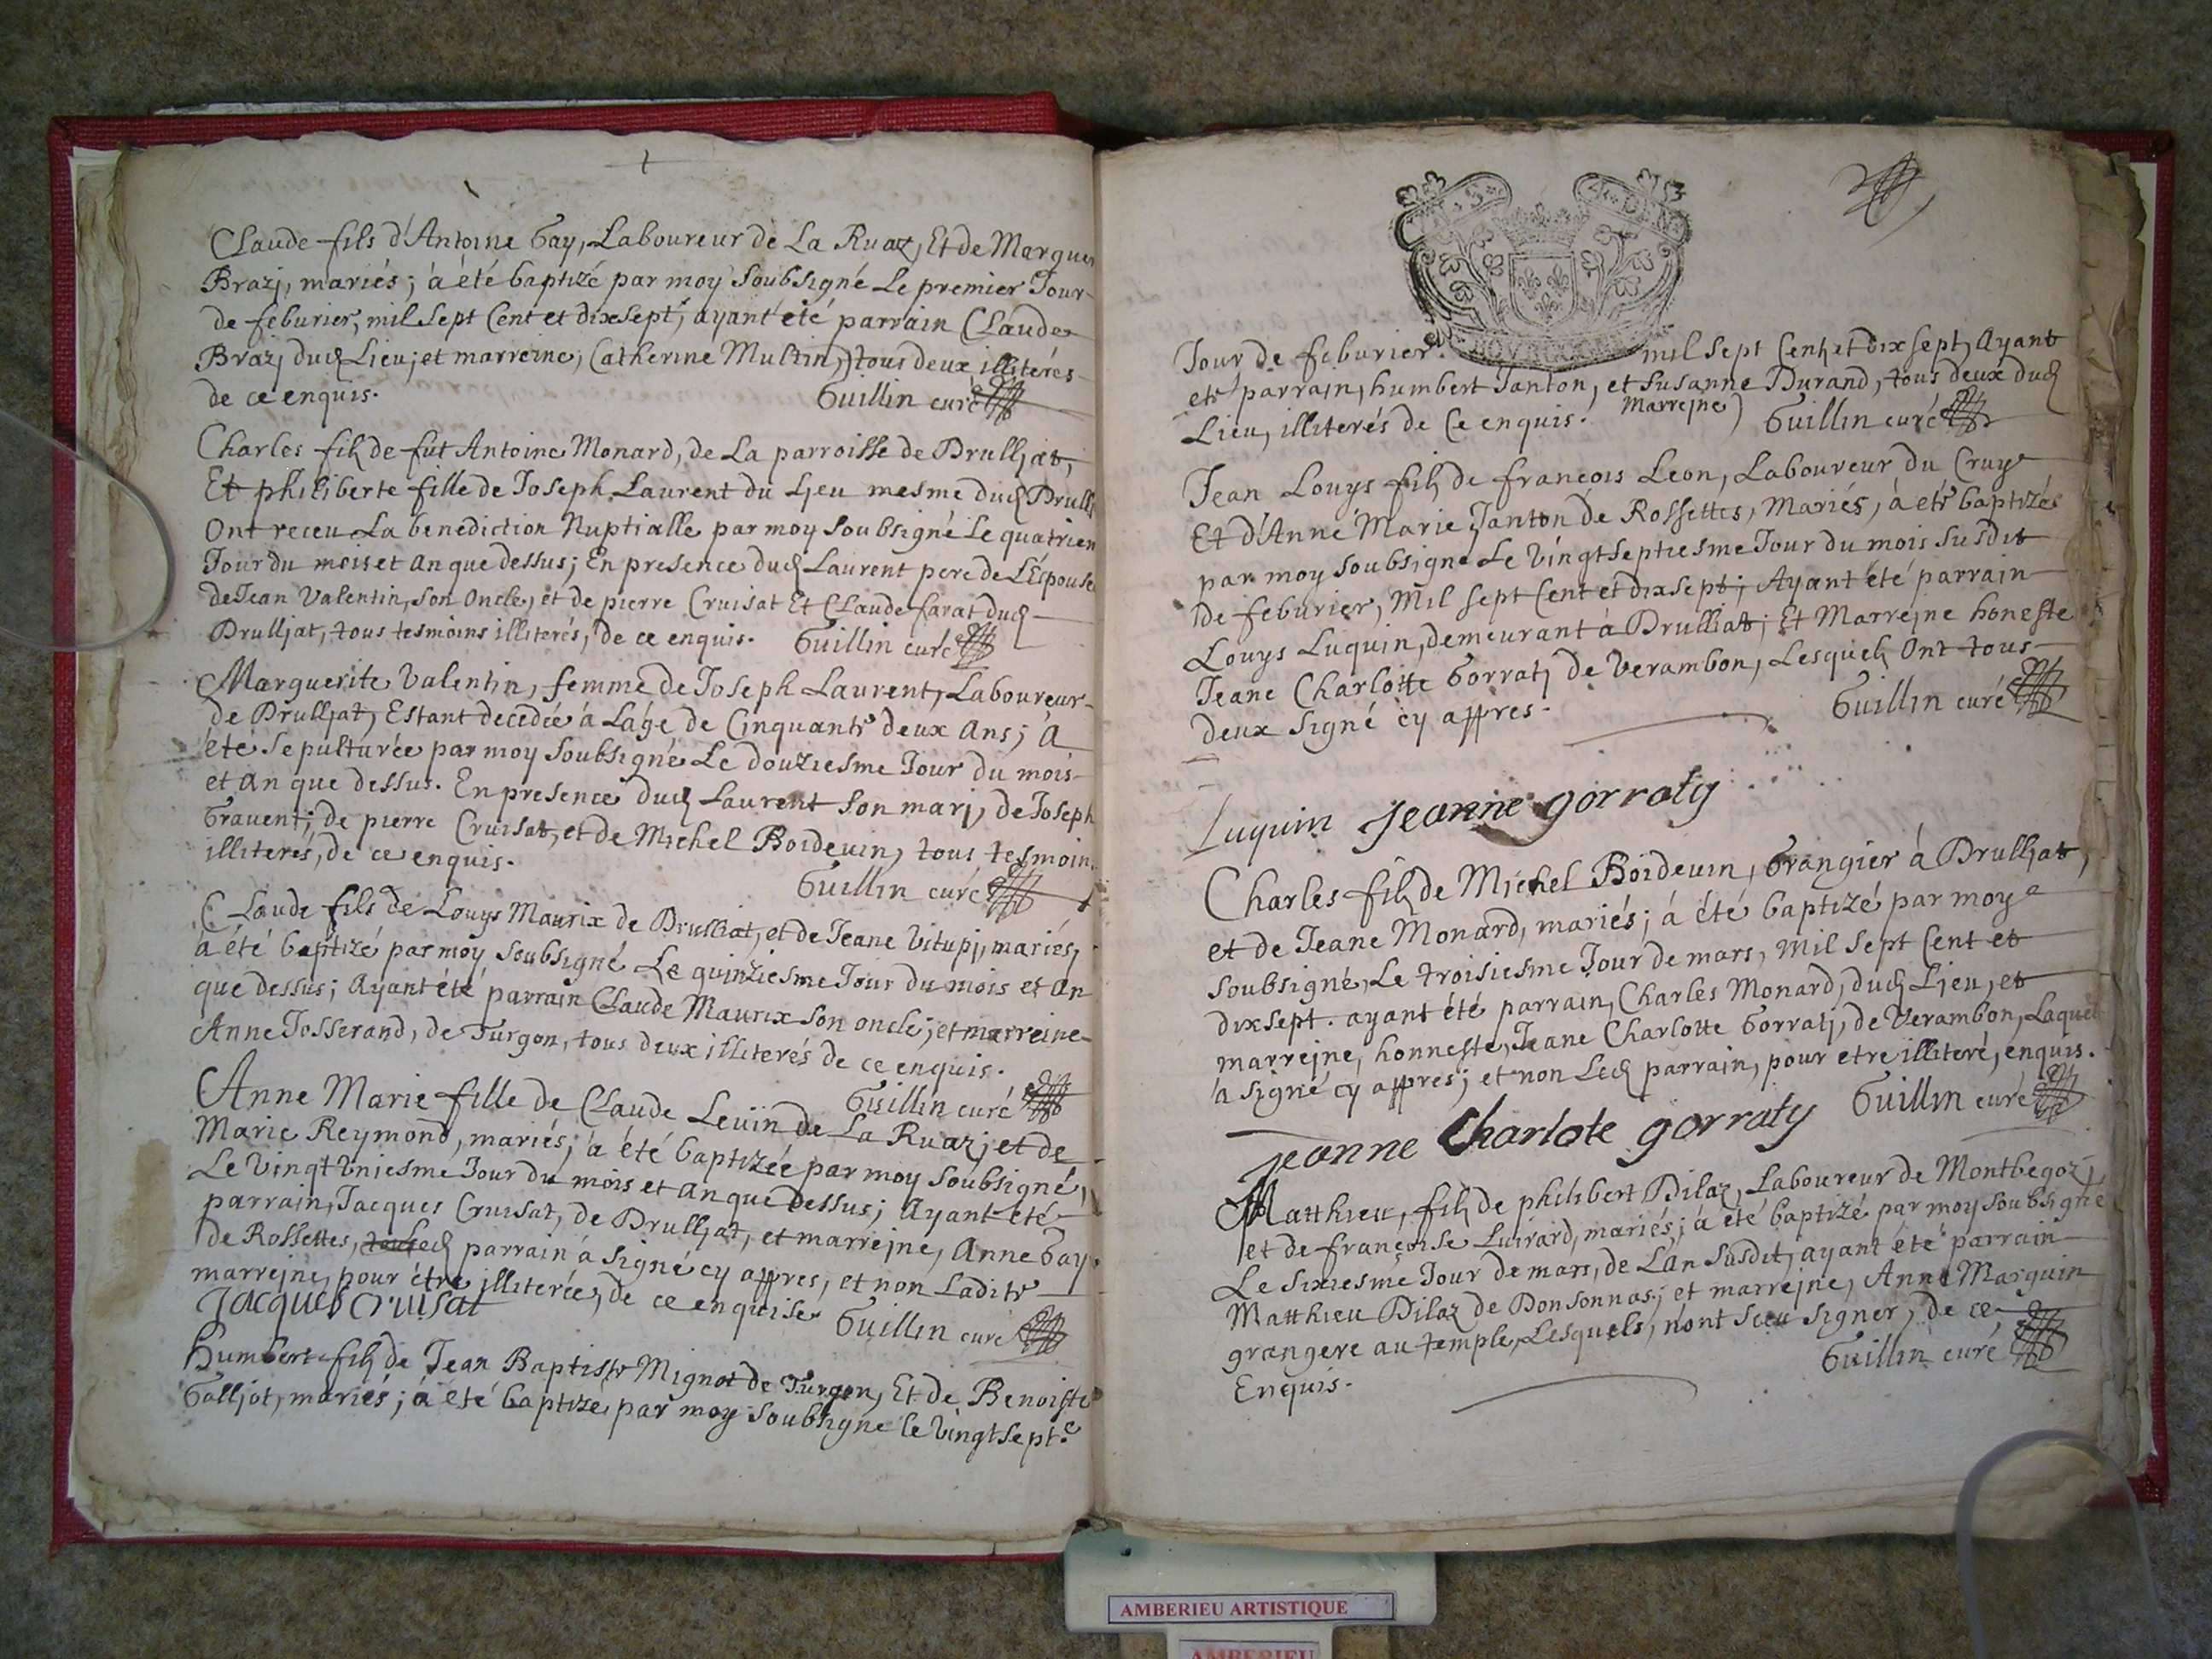 Claude fils d'Antoine Gay, Laboureur de La Ruaz, Et de Margue
Brazj, mariés; à été baptizé par moy soubsigné Le premier Jour
de feburier, mil sept Cent et dixsept, ayant été parrain Claude
Brazj dud Lieu; et marreine, Catherine Multin, tous deux illiterés
de ce enquis. Guillin curé
Charles fils de fut Antoine Monard, de La parroisse de Drulljat,
Et philiberte fille de Joseph Laurent du Ljeu mesme dud Drull
Ont receu La benediction Nuptialle par moy soubsigné Le quatrien
Jour du mois et an que dessus; En presence dud Laurent pere de L'Espouse
de Jean Valentin, son Oncle, et de pierre Cruisat Et Claude farat dud
Drulljat, tous tesmoins illiterés, de ce enquis. Guillin curé
Marguerite Valentin, femme de Joseph Laurent, Laboureur
de Drulljat, Estant decedée à Lâge de Cinquante deux Ans; à
été sepulturée par moy soubsigné Le douziesme Jour du mois
et an que dessus. En presence dud Laurent son marj, de Joseph
Gravent; de pierre Cruisat, et de Michel Boideuin, tous tesmoin
illiterés, de ce enquis.
Guillin curé
Claude fils de Louys Maurix de Drulliat, et de Jeane Vitupj, mariés,
à été baptizé par moy soubsigné Le quinziesme Jour du mois et an
que dessus; Ayant été parrain Claude Maurix son oncle; et marreine
Anne Josserand, de Turgon, tous deux illiterés de ce enquis.
Guillin curé
Anne Marie fille de Claude Leuin de La Ruaz; et de
Marie Reymond, mariés; à été baptizée par moy soubsigné,
Le Vingt Vniesme Jour du mois et an que dessus; Ayant été
parrain, Jacques Cruisat, de Drulljat, et marrejne, Anne Gay
de Rossettes, led parrain à signé cy appres, et non Ladite
marrejne, pour être illiterée, de ce enquise
Jacques cruisat Guillin curé
Humbert fils de Jean Baptiste Mignot de Turgon, Et de Benoiste
Galljot, mariés; à été baptizé par moy soubsigné le Vingtsept.e
Jour de feburier. mil sept Cent et dix sept, Ayant
eté parrain, humbert Janton, et Susanne Durand, tous deux dud
Marrejne
Lieu, illiterés de Ce enquis. Guillin curé
Jean Louys fils de françois Leon, Laboureur du Cruye
Et d'Anne Marie Janton de Rossettes, Mariés, à eté baptizé
par moy soubsigné Le Vingtseptiesme Jour du mois susdit
de feburier, Mil sept Cent et dixsept; Ayant été parrain
Louys Luquin, demeurant à Drulliat; Et Marrejne honeste
Jeane Charlotte Gorratj de Verambon, Lesquels Ont tous
deux signé cy appres. Guillin curé
Luquin Jeanne gorraty
Charles fils de Mjchel Boideuin, Grangier à Drulljat,
et de Jeane Monard, mariés; à été baptizé par moy
soubsigné, Le troisiesme Jour de mars, mil sept Cent et
dixsept. ayant été parrain, Charles Monard, dud Ljeu, et
marrejne, honneste, Jeane Charlotte Gorratj, de Verambon, Laquel
à signé cy appres; et non Led parrain, pour etre illiteré, enquis.
Jeanne Charlote gorraty Guillin curé
Matthieu, fils de philibert Dilaz, Laboureur de Montbegoz;
et de françoise Luirard, mariés; à été baptizé par moy soubsigné
Le sixiesme Jour de mars, de Lan susdit, ayant été parrain
Matthieu Dilaz de Donsonnas; et marrejne, Anne Marguin
grangere au temple, Lesquels, n'ont sceu signer, de ce,
Enquis. Guillin curé
AMBERIEU ARTISTIQUE
AMBERIEU